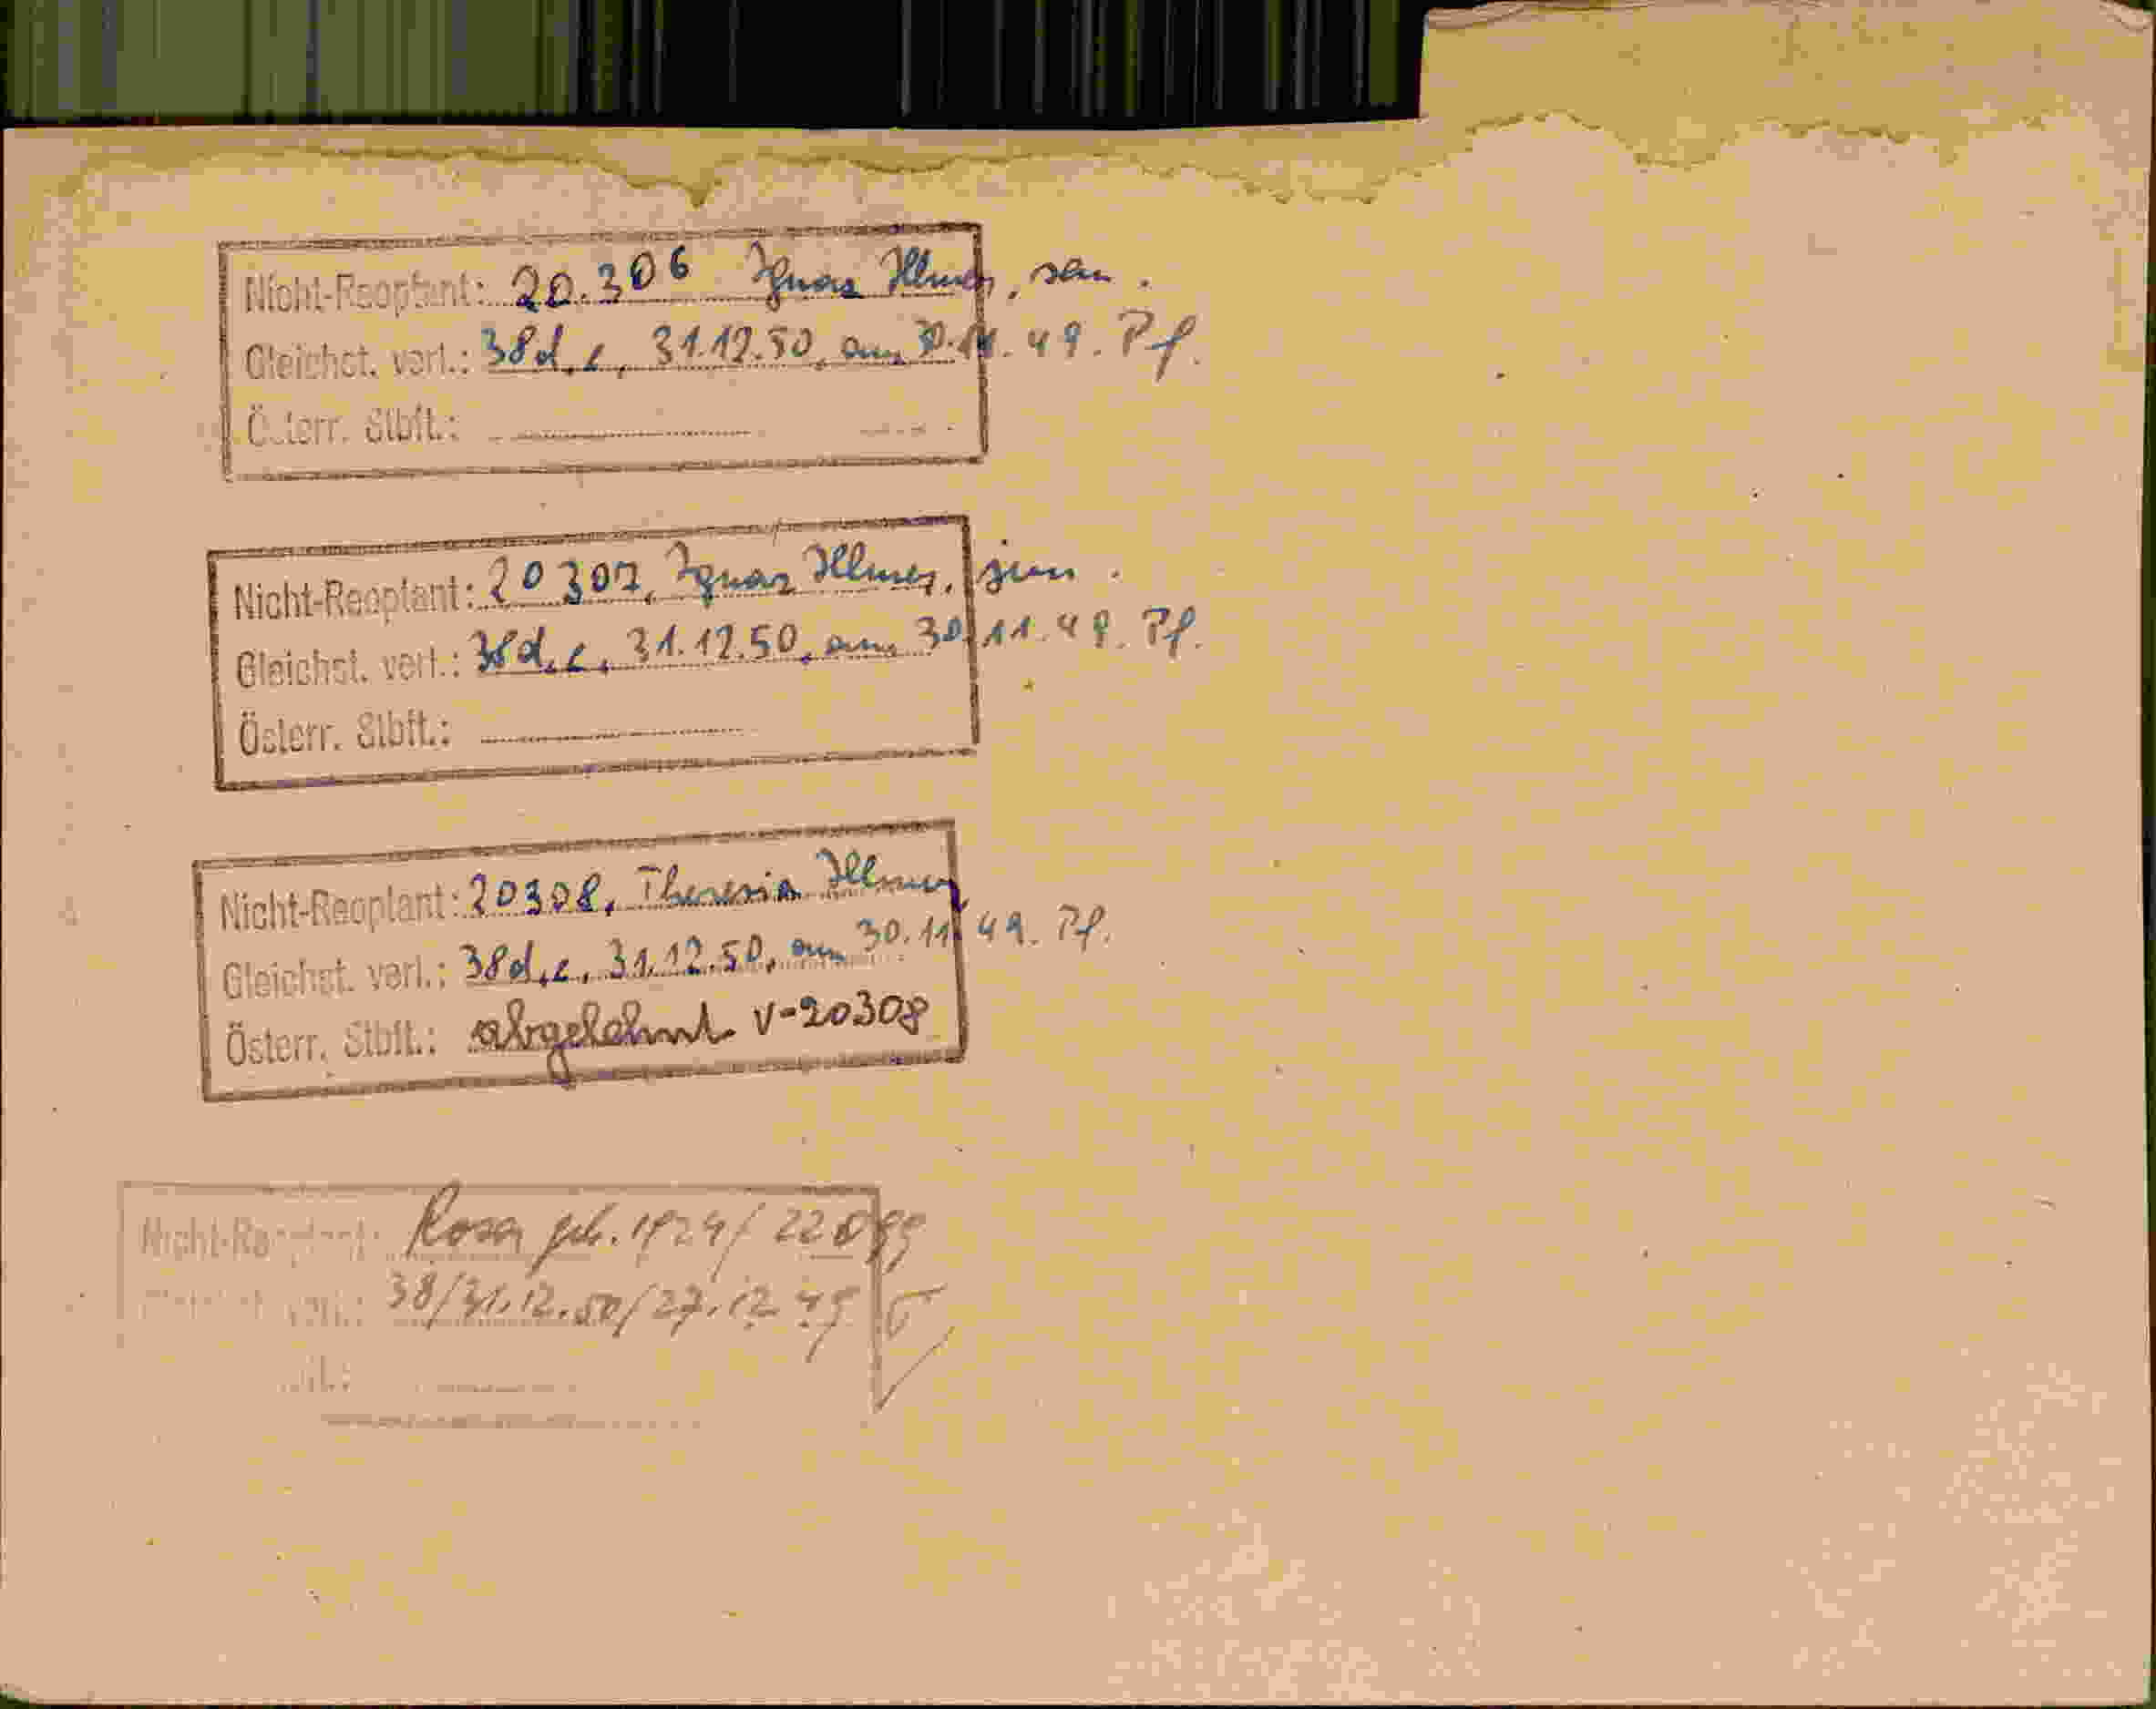 Nicht-Reoptant: 20.306 Ignaz Illmer, sen.
Gleichst. verl.: 38d, c, 31.12.50, am 30.11.49. Pf.
Österr. Stbft.:
Nicht-Reoptant: 20307, Ignaz Illmer, jun.
Gleichst. verl.: 38d, c, 31.12.50, am 30.11.49. Pf.
Österr. Stbft.:
Nicht-Reoptant: 20308, Theresia Illmer
Gleichst. verl.: 38d, c, 31.12.50, am 30.11.49. Pf.
Österr. Stbft.: abgelehnt V-20308
Nicht-Reoptant: Rosa geb. 1924/
verl.: 38/31.12.50/27.12.49